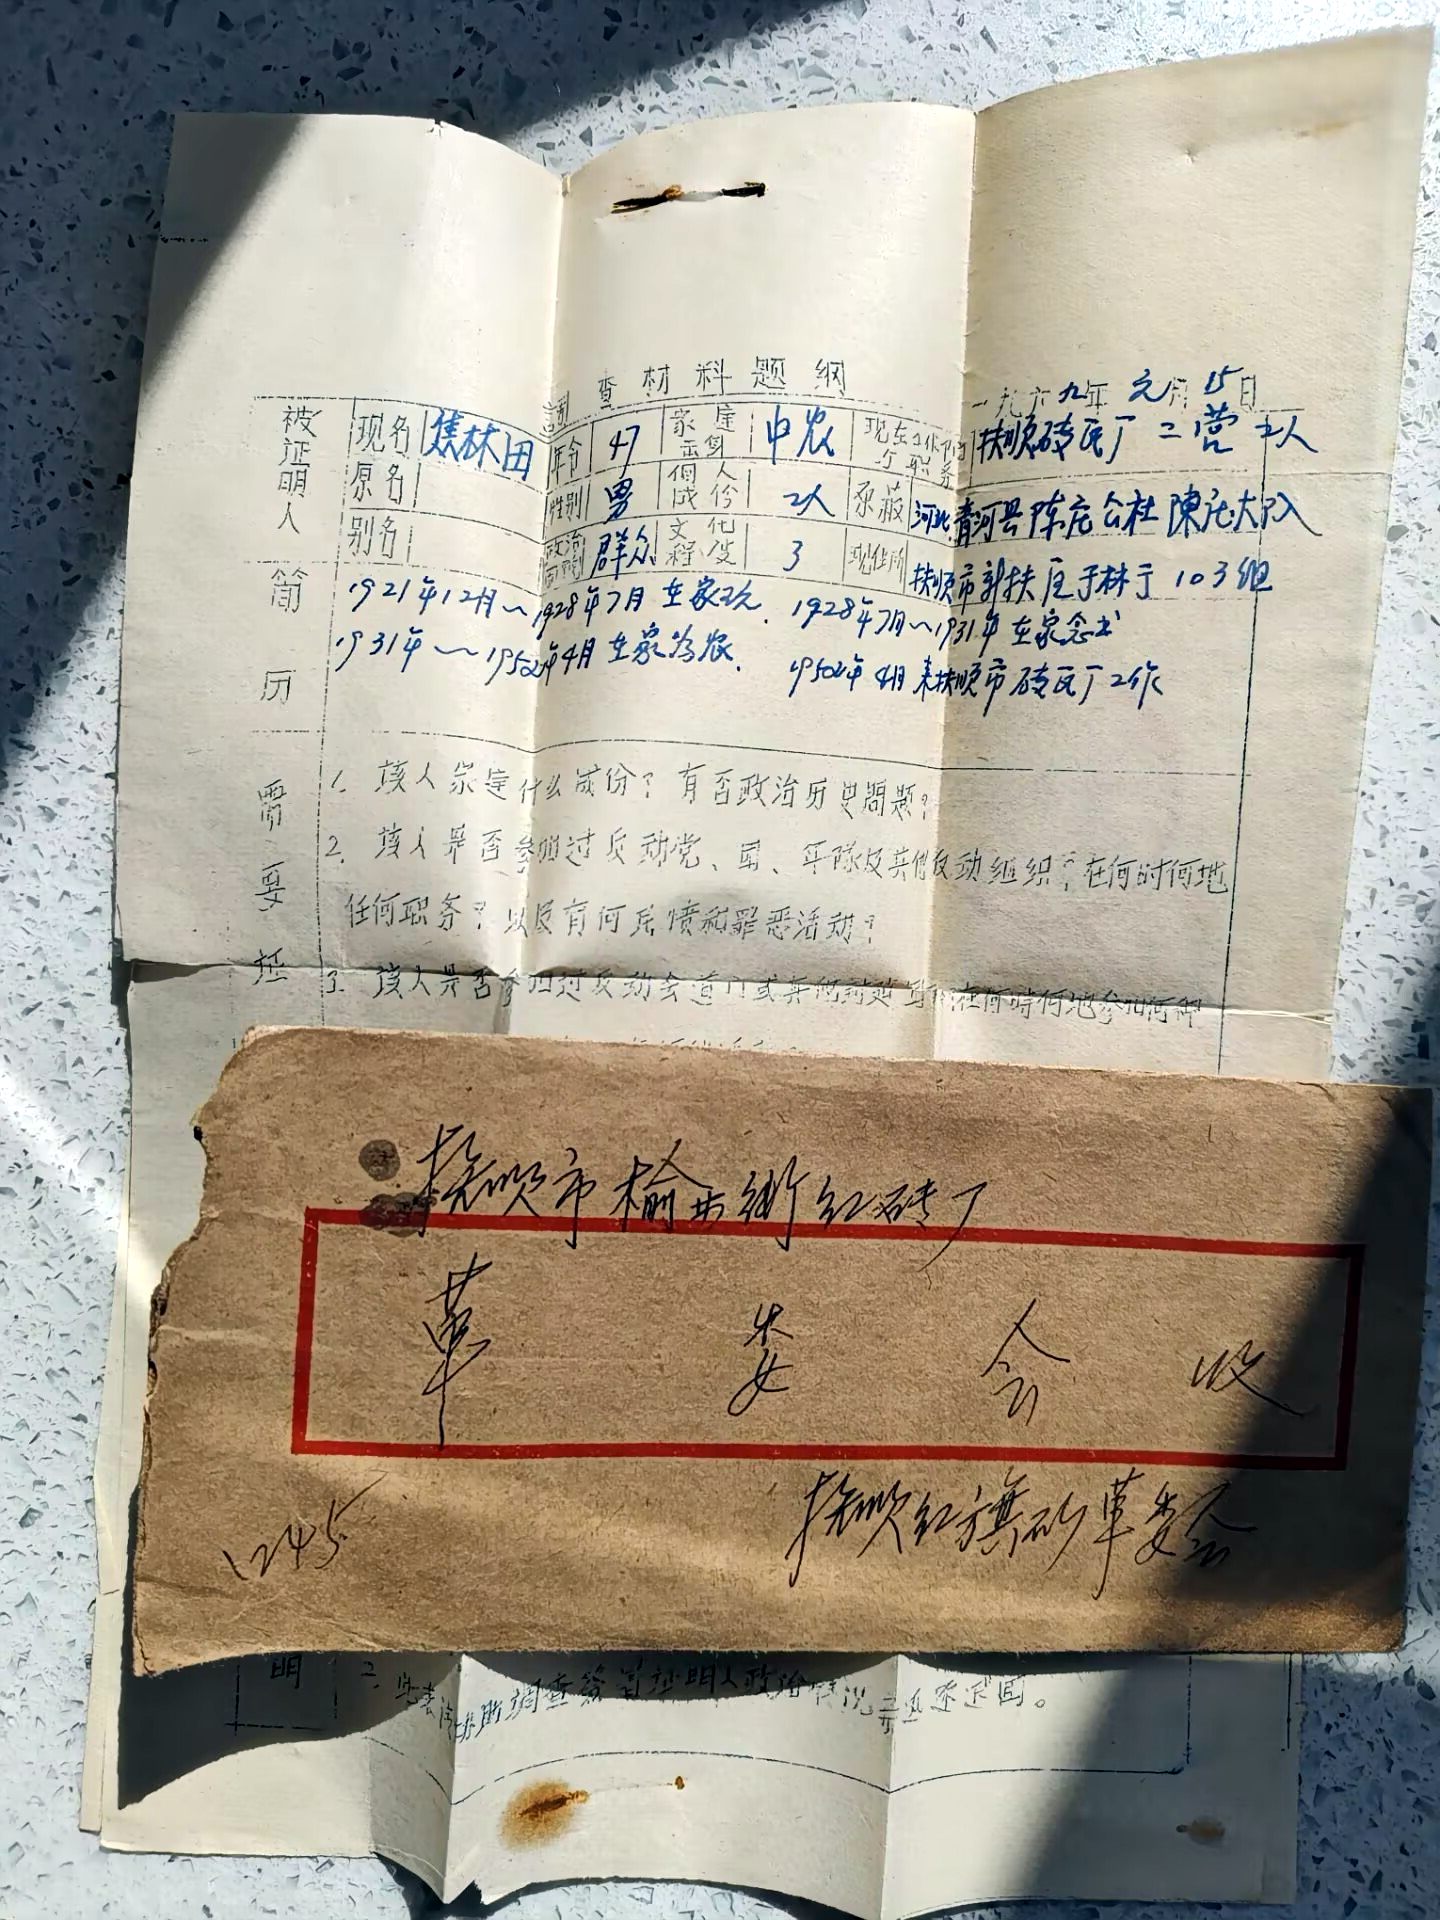 調查材料题纲
一九六九年元月15日
被证明人 现名 焦林田 年令 47 家庭出身 中农 现在工作部门职务 抚顺砖瓦厂二营工人
原名 性别 男 個人成份 工人 原藉 河北清河县陈庄公社陳庄大队
别名 政治面貌 群众 文化程度 3 現住所 抚顺市新抚区于林于103组
简历 1921年12月～1928年7月在家玩. 1928年7月～1931年在家念书
1931年～1952年4月在家为农. 1952年4月来抚顺市砖瓦厂工作
需要证
1. 该人家庭什么成份？有否政治历史問题？
2. 该人是否参加过反动党、团、军隊及其他反动组织？在何时何地
任何职务？以及有何民愤和罪恶活动？
3. 该人是否参加过反动会道门或其他封建 在何時何地参加何
抚顺市榆林街红砖厂
革委会收
抚顺红旗矿革委会
1245
明
2. 此表请协助調查簽署证明人政治情况 退还我回。